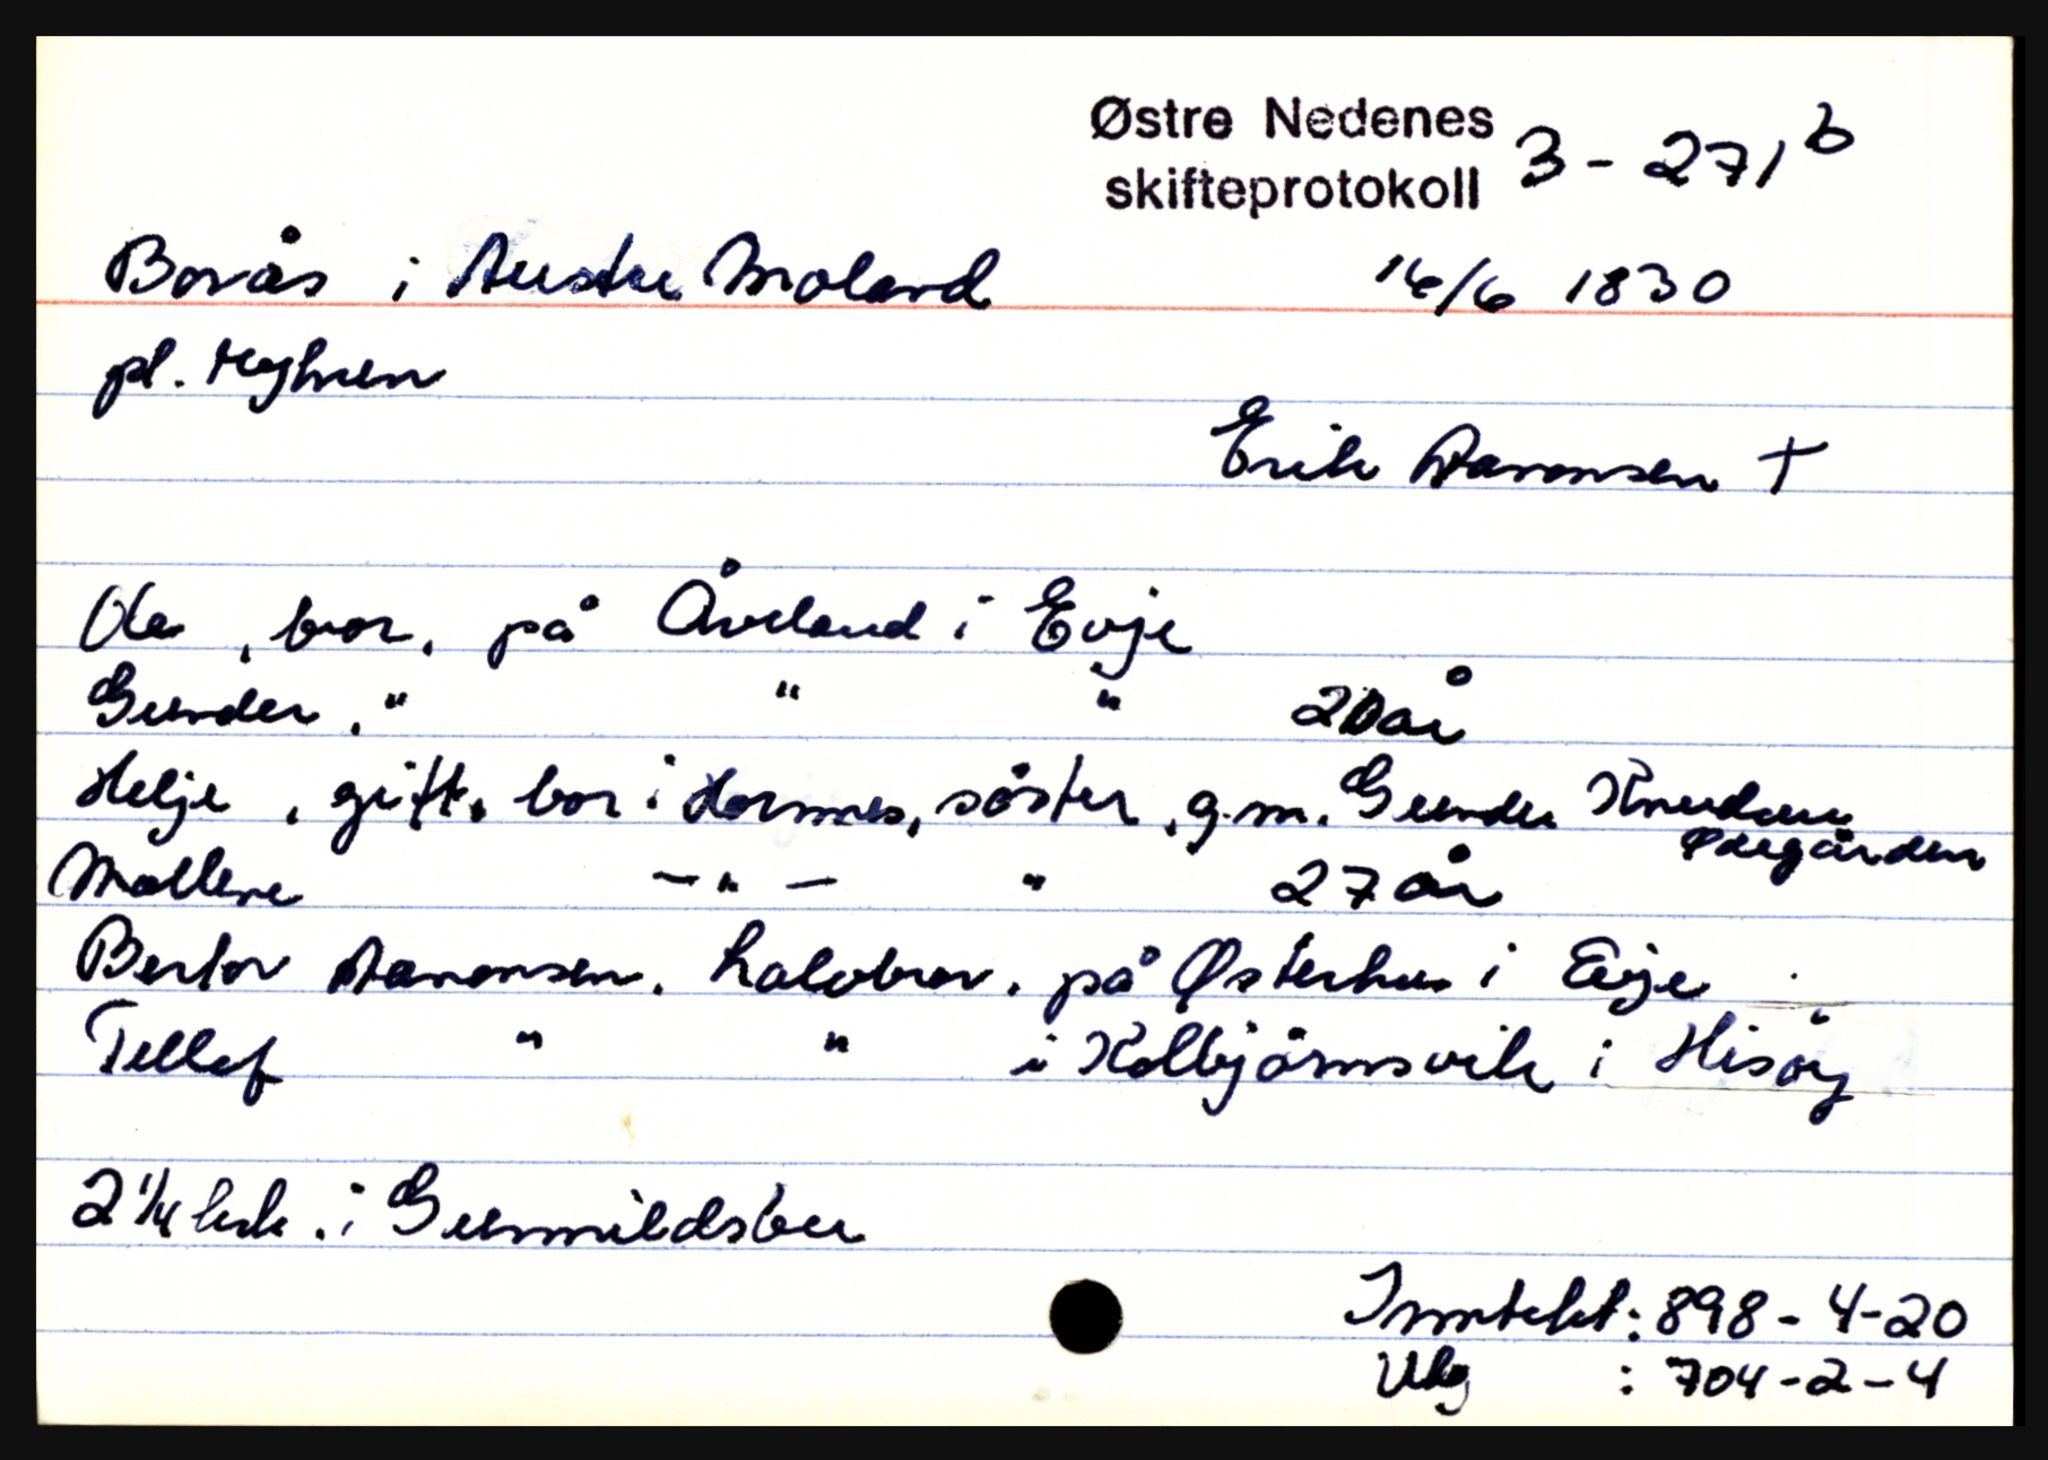 Østre Nedenes
skifteprotokoll 3 - 271 b
Borås i Austre Moland 16/6 1830
pl. Myhren
Erik Aaronsen †
Ole , bror , på Åveland i Evje
Gunder , " " " 20 år
Helje , gift, bor i Hornnes, söster , g.m. Gunder Knudsen
Ødegården
Mallene — " — " 27 år
Bertor Aaronsen , halvbror , på Østerhus i Evje
Tellef " " i Kolbjörnsvik i Hisöy
2 1/4 i Gunnildsbu
Inntekt : 898 - 4 - 20
Utg : 704 - 2 - 4